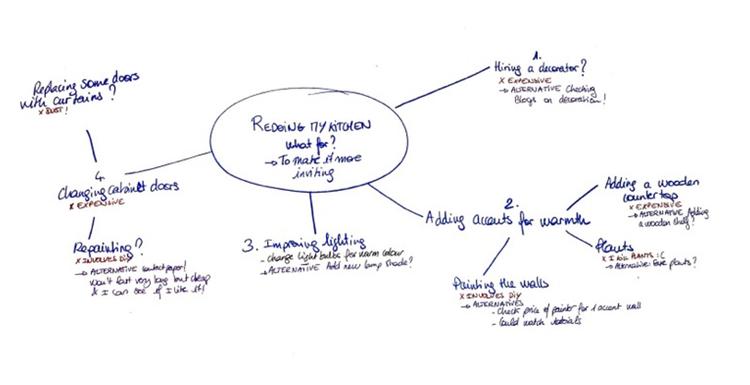 REDOING MY KITCHEN
What for?
→ To make it more
inviting
1.
Hiring a decorator?
X EXPENSIVE
→ ALTERNATIVE Checking
Blogs on decoration!
2.
Adding accents for warmth
Adding a wooden
countertop
X EXPENSIVE
→ ALTERNATIVE Adding
a wooden shelf?
Plants
X I kill PLANTS :C
→ Alternative: Fake plants?
Painting the walls
X INVOLVES DIY
→ ALTERNATIVES
- Check price of painter for 1 accent wall
- Could watch tutorials
3. Improving lighting
- change light bulbs for warm colour
→ ALTERNATIVE Add new lamp shade?
4.
Changing cabinet doors
X EXPENSIVE
Replacing some doors
with curtains?
X DUST!
Repainting?
X INVOLVES DIY
→ ALTERNATIVE contact paper!
Won't last very long but cheap
& I can see if I like it!